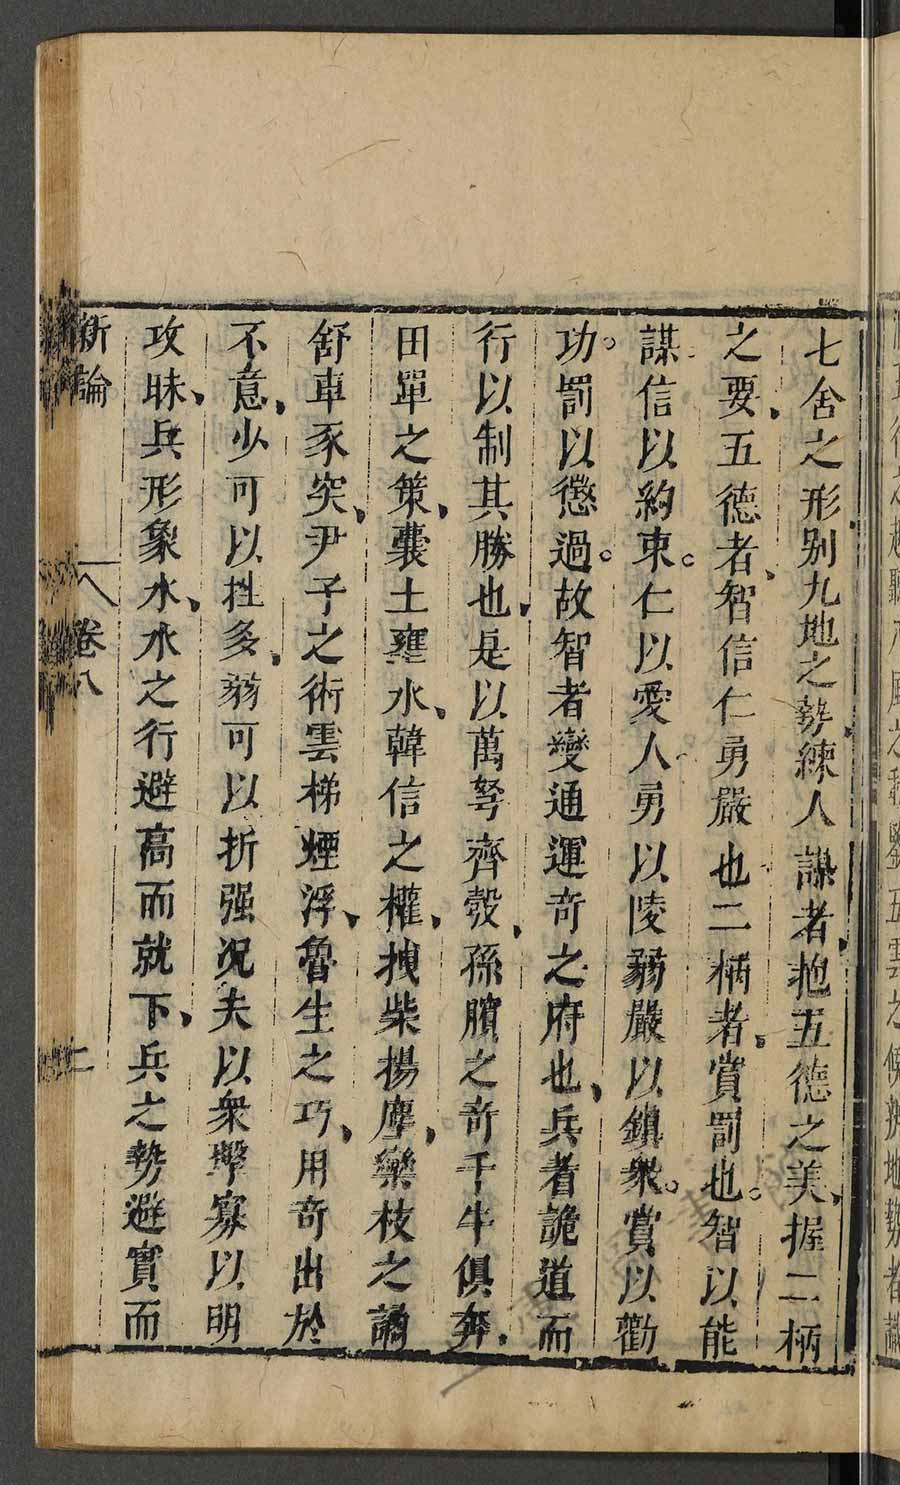 七舍之形别九地之勢練人謀者抱五德之美握二柄
之要五德者智信仁勇嚴也二柄者賞罰也智以能
謀信以約束仁以愛人勇以陵弱嚴以鎮衆賞以勸
功罰以懲過故智者變通運奇之府也兵者詭道而
行以制其勝也是以萬弩齊彀孫臏之奇千牛俱奔
田單之策囊土壅水韓信之權拽柴揚塵欒枝之譎
舒車豕突尹子之術雲梯煙浮魯生之巧用奇出於
不意少可以挫多弱可以折强况夫以衆擊寡以明
攻昧兵形象水水之行避高而就下兵之勢避實而
新論
卷八
二